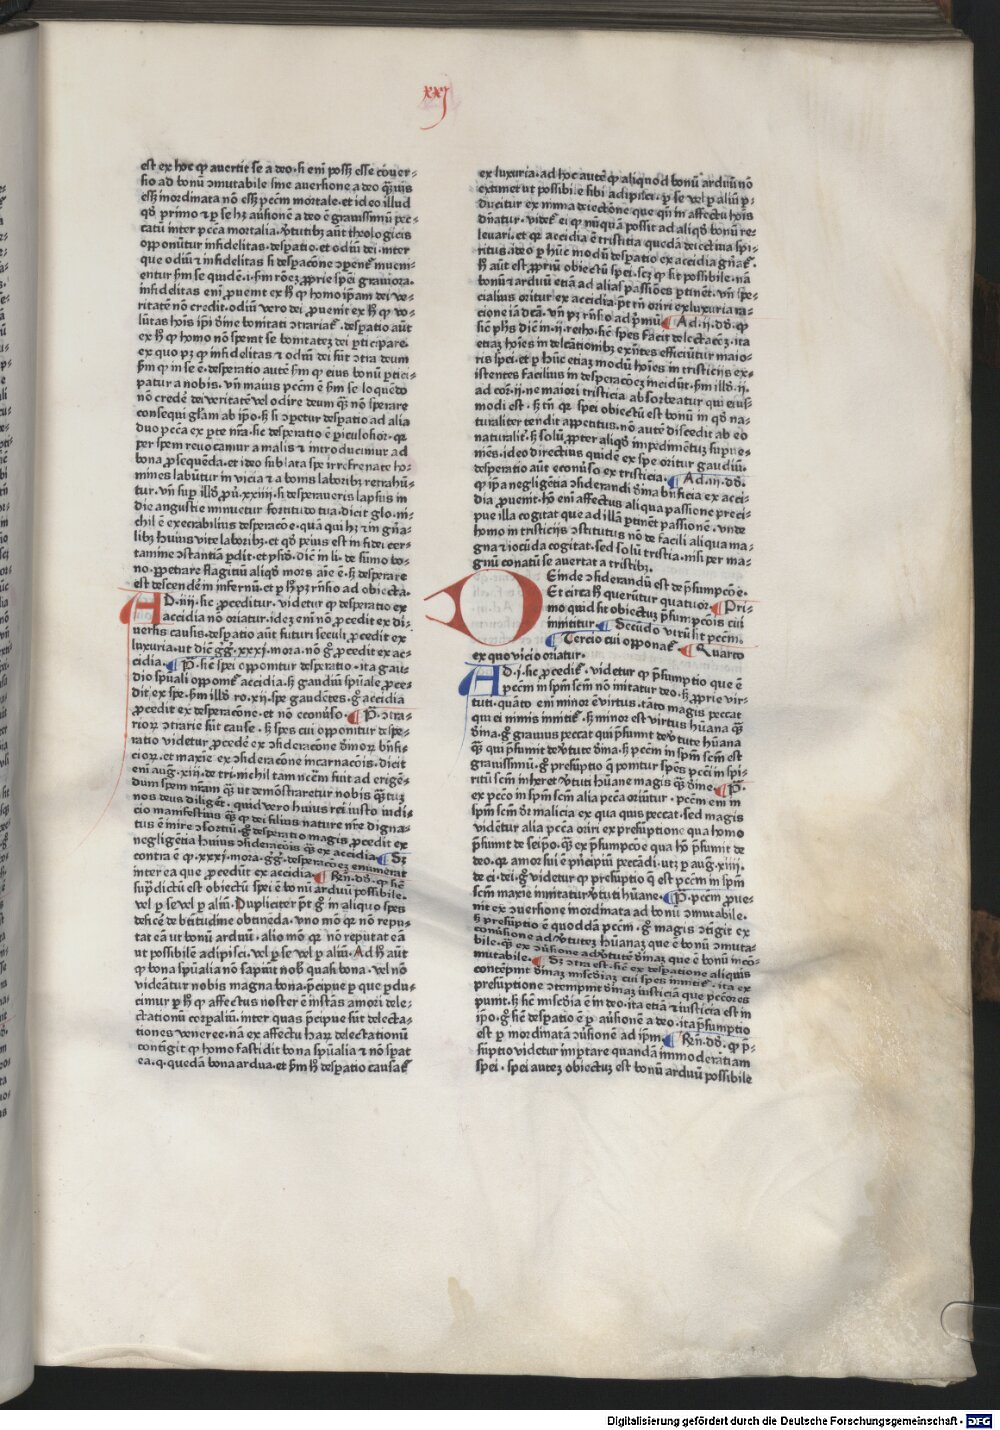 xxj
est ex hoc ꝙ auertit se a deo · si em̄ poss̄ esse cōuer⸗
sio ad bonū ↄmutabile sine auersione a deo q̄uis
ess̄ inordinata nō ess̄ pccm̄ mortale · et ideo illud
qd̄ primo ⁊ ꝑ se hꝫ aūsionē a deo ē grauissimū pec⸗
catū inter pccā mortalia · v̓tutibꝫ aūt theologicis
opponūtur infidelitas · desꝑatio · et odiū dei · inter
que odiū ⁊ infidelitas si desꝑacōne ↄꝑent̄ inueni⸗
entur ẜm se quidē · i · ẜm rōeꝫ ꝓprie spēi grauiora ·
infidelitas enī ꝓuenit ex h̄ ꝙ homo ip̄am dei ve⸗
ritatē nō credit · odiū vero dei ꝓuenit ex h̄ ꝙ vo⸗
lūtas hōis ip̄i diīne bonitati ↄtrariat̄ · desꝑatio aūt
ex h̄ ꝙ homo nō sperat se bonitateꝫ dei ꝑticipare ·
ex quo pꝫ ꝙ infidelitas ⁊ odiū dei sūt ↄtra deum
ẜm ꝙ in se ē · desperatio autē ẜm ꝙ eius bonū ꝑtici⸗
patur a nobis · vn̄ maius pccm̄ ē ẜm se loquēdo
nō credē dei veritatē vel odire deum q̄ȝ nō sperare
consequi glīam ab ip̄o · h̄ si ↄꝑetur desꝑatio ad alia
duo pccā ex ꝑte nr̄a · sic desperatio ē ꝑiculosior · qr
per spem reuocamur a malis ⁊ introducimur ad
bona ꝓsequēda · et ideo sublata spe irrefrenate ho⸗
mines labūtur in vicia ⁊ a bonis laboribꝫ retrahū⸗
tur · vn̄ suꝑ illd̄ ꝓū · xxiiij · si desperaueris lapsus in
die angustie minuetur fortitudo tua · dicit glo · ni⸗
chil ē execrabilius desperacōe · quā qui hꝫ ⁊ in gn̄a⸗
libꝫ huius vite laboribꝫ · et qd̄ peius est in fidei cer⸗
tamine ↄstantiā ꝑdit · et ysid̄ · dic̄ in li · de sūmo bo⸗
no · ꝑpetrare flagitiū aliqd̄ mors aīe ē · h̄ desperare
est descendē in infernū · et ꝑ h̄ pꝫ rn̄sio ad obiecta ·
AD · iiij · sic ꝓceditur · videtur ꝙ desperatio ex
accidia nō oriatur · ideꝫ enī nō ꝓcedit ex di⸗
uersis causis · desꝑatio aūt futuri seculi ꝓcedit ex
luxuria · ut dic̄ gḡ · xxxi · mora · nō g̊ ꝓcedit ex ac⸗
cidia · ¶ P̄ · sic spei opponitur desperatio · ita gau⸗
dio spūali opponit̄ accidia · h̄ gaudiū spūale ꝓce⸗
dit ex spe · ẜm illd̄ ro · xij · spe gaudētes · g̊ accidia
ꝓcedit ex desperacōne · et nō ecōuūso · ¶ P̄ · ↄtra⸗
rioꝝ ↄtrarie sūt cause · h̄ spes cui opponitur despe⸗
ratio videtur ꝓcedē ex ↄsideracōne diīnoꝝ bn̄fi⸗
cioꝝ · et maxīe ex ↄsideracōne incarnacōis · dicit
enī auḡ · xiij · de tri · nichil tam necm̄ fuit ad erigē⸗
dum spem nr̄am q̄ȝ ut demōstraretur nobis q̄tuꝫ
nos deus diliget · quid vero huius rei iusto indi⸗
cio manifestius q̄ȝ ꝙ dei filius nature nr̄e digna⸗
tus ē mire ↄsortiū · g̊ desperatio magis ꝓcedit ex
negligētia huius ↄsideracōis q̄ȝ ex accidia · ¶ Sꝫ
contra ē ꝙ · xxxi · mora · gḡ · desperacōeꝫ enumerat
inter ea que ꝓcedūt ex accidia · ¶ Rn̄ · dd̄ · ꝙ sic̄
supͣdictū est obiectū spei ē bonū arduū possibile ·
vel ꝑ se vel ꝑ aliū · Dupliciter p̄t g̊ in aliquo spes
deficē de bt̄itudine obtinēda · vno mō qr nō repu⸗
tat eā ut bonū arduū · alio mō qr nō reputat eā
ut possibilē adipisci · vel ꝑ se vel ꝑ aliū · Ad h̄ aūt
ꝙ bona spūalia nō sapiūt nob̄ quasi bona · vel nō
videātur nobis magna bona · p̄cipue ꝑ que ꝑdu⸗
cimur ꝑ h̄ ꝙ affectus noster ē instās amori dele⸗
ctationū corꝑaliū · inter quas p̄cipue sūt delecta⸗
tiones veneree · nā ex affectu haꝝ delectationū
contīgit ꝙ homo fastidit bona spūalia ⁊ nō sꝑat
ea · q · quedā bona ardua · et ẜm h̄ desꝑatio causat̄
ex luxuria · ad hoc autē ꝙ aliquod bonū arduū nō
extimet ut possibile sibi adipisci · ꝑ se vel ꝑ aliū ꝑ⸗
ducitur ex nimia deiectōne que qn̄ in affectu hōis
dn̄atur · videt̄ ei ꝙ nūquā possit ad aliqd̄ bonū re⸗
leuari · et qr accidia ē tristitia quedā deiectiua spi⸗
ritus · ideo ꝑ hūc modū desꝑatio ex accidia gn̄at̄ ·
h̄ aūt est ꝓpriū obiectū spei · scꝫ ꝙ sit possibile · nā
bonū ⁊ arduū etiā ad alias passiōes ꝑtinent · vn̄ spe⸗
cialius oritur ex accidia · p̄t tn̄ oriri ex luxuria ra⸗
cione iā dc̄a · vn̄ pꝫ rn̄sio ad p̄mū · ¶ Ad · ij · dd̄ · ꝙ
sic̄ ph̄s dic̄ in · ij · reiho · sic̄ spes facit delectacōeꝫ · ita
etiaꝫ hōies in delcātionibꝫ exn̄tes efficiūtur maio⸗
ris spei · et ꝑ hūc etiaꝫ modū hōies in tristicijs ex⸗
istentes facilius in desperacōeꝫ incidūt · ẜm illd̄ · ij ·
ad cor̄ · ij · ne maiori tristicia absorbeatur qui eius⸗
modi est · h̄ tn̄ qr spei obiectū est bonū in qd̄ na⸗
turaliter tendit appetitus · nō autē discedit ab eo
naturalit̄ · h̄ solū ꝓpter aliqd̄ impedimētuꝫ suꝑue⸗
niēs · ideo directius quidē ex spe oritur gaudiū ·
desperatio aūt ecōuūso ex tristicia · ¶ Ad · iij · dd̄ ·
ꝙ ip̄a negligētia ↄsiderandi diīna bn̄ficia ex acci⸗
dia ꝓuenit · hō enī affectus aliqua passione preci⸗
pue illa cogitat que ad illā ꝑtinēt passionē · vnde
homo in tristicijs ↄstitutus nō de facili aliqua ma⸗
gna ⁊ iocūda cogitat · sed solū tristia · nisi per ma⸗
gnū conatū se auertat a tristibꝫ ·
DEinde ↄsiderandū est de p̄sumpcōe ·
Et circa h̄ querūtur quatuor · ¶ Pri⸗
mo quid sit obiectuꝫ p̄sumpcōis cui
innititur · ¶ Secūdo vtrū sit pccm̄ ·
¶ Tercio cui opponat̄ · ¶ Quarto
ex quo vicio oriatur ·
AD · j · sic ꝓcedit̄ · videtur ꝙ p̄sumptio que ē
pccm̄ in spm̄ scm̄ nō innitatur deo · h̄ ꝓprie vir⸗
tuti · quāto enī minor ē virtus · tāto magis peccat
qui ei nimis innitit̄ · h̄ minor est virtus hūana q̄ȝ
diīna · g̊ grauius peccat qui p̄sumit de v̓tute hūana
q̄ȝ qui p̄sumit de v̓tute diīna · h̄ pccm̄ in spm̄ scm̄ est
grauissimū · g̊ presūptio q̄ ponitur spēs pccī in spi⸗
ritū scm̄ inheret v̓tuti hūane magis q̄ȝ diīne · ¶ P̄ ·
ex pccō in spm̄ scm̄ alia pccā oriūtur · pccm̄ em̄ in
spm̄ scm̄ dr̄ malicia ex qua quis peccat · sed magis
vidētur alia pccā oriri ex presūptione qua homo
p̄sumit de seip̄o · q̄ȝ ex p̄sumpcōe qua hō p̄sumit de
deo · qr amor sui ē p̄ncipiū peccādi · ut pꝫ ꝑ auḡ · xiiij ·
de ci · dei · g̊ videtur ꝙ presuptio q̄ est pccm̄ in spm̄
scm̄ maxīe innitatur v̓tuti hūane · ¶ P̄ · pccm̄ ꝓue⸗
nit ex ↄuersione inordinata ad bonū ↄmutabile ·
h̄ presūptio ē quoddā pccm̄ · g̊ magis ↄtīgit ex
conūsione ad v̓tuteꝫ hūanaꝫ que ē bonū ↄmuta⸗
bile · q̄ȝ ex ↄūsione ad v̓tutē diīnaꝫ que ē bonū incō⸗
mutabile · ¶ Sꝫ ↄtra est · sic̄ ex desperatione aliquis
contēpnit diīnaꝫ mīscd̄iaꝫ cui spes innitit̄ · ita ex
presūptione ↄtempnit diīnaꝫ iusticiā que pccōres
punit · h̄ sic̄ mīscd̄ia ē in deo · ita etiā ⁊ iusticia est in
ip̄o · g̊ sic̄ desꝑatio ē ꝑ aūsionē a deo · ita p̄sumptio
est ꝑ inordinatā ↄūsionē ad ip̄m · ¶ Rn̄ · dd̄ · ꝙ p̄⸗
sūptio videtur īmportare quandā immoderātiam
spei · spei auteꝫ obiectuꝫ est bonū arduū possibile
Digitalisierung gefördert durch die Deutsche Forschungsgemeinschaft · DFG